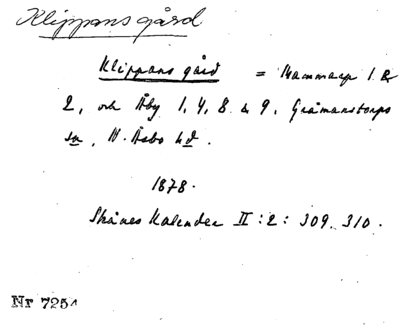 Klippans gård
Klippans gård = Stammarp 1 &
2, och Åby 1, 4, 8 & 9, Gråmanstorps
sn, N. Åsbo hd.
1878.
Skånes Kalender II:2: 309, 310.
Nr 725